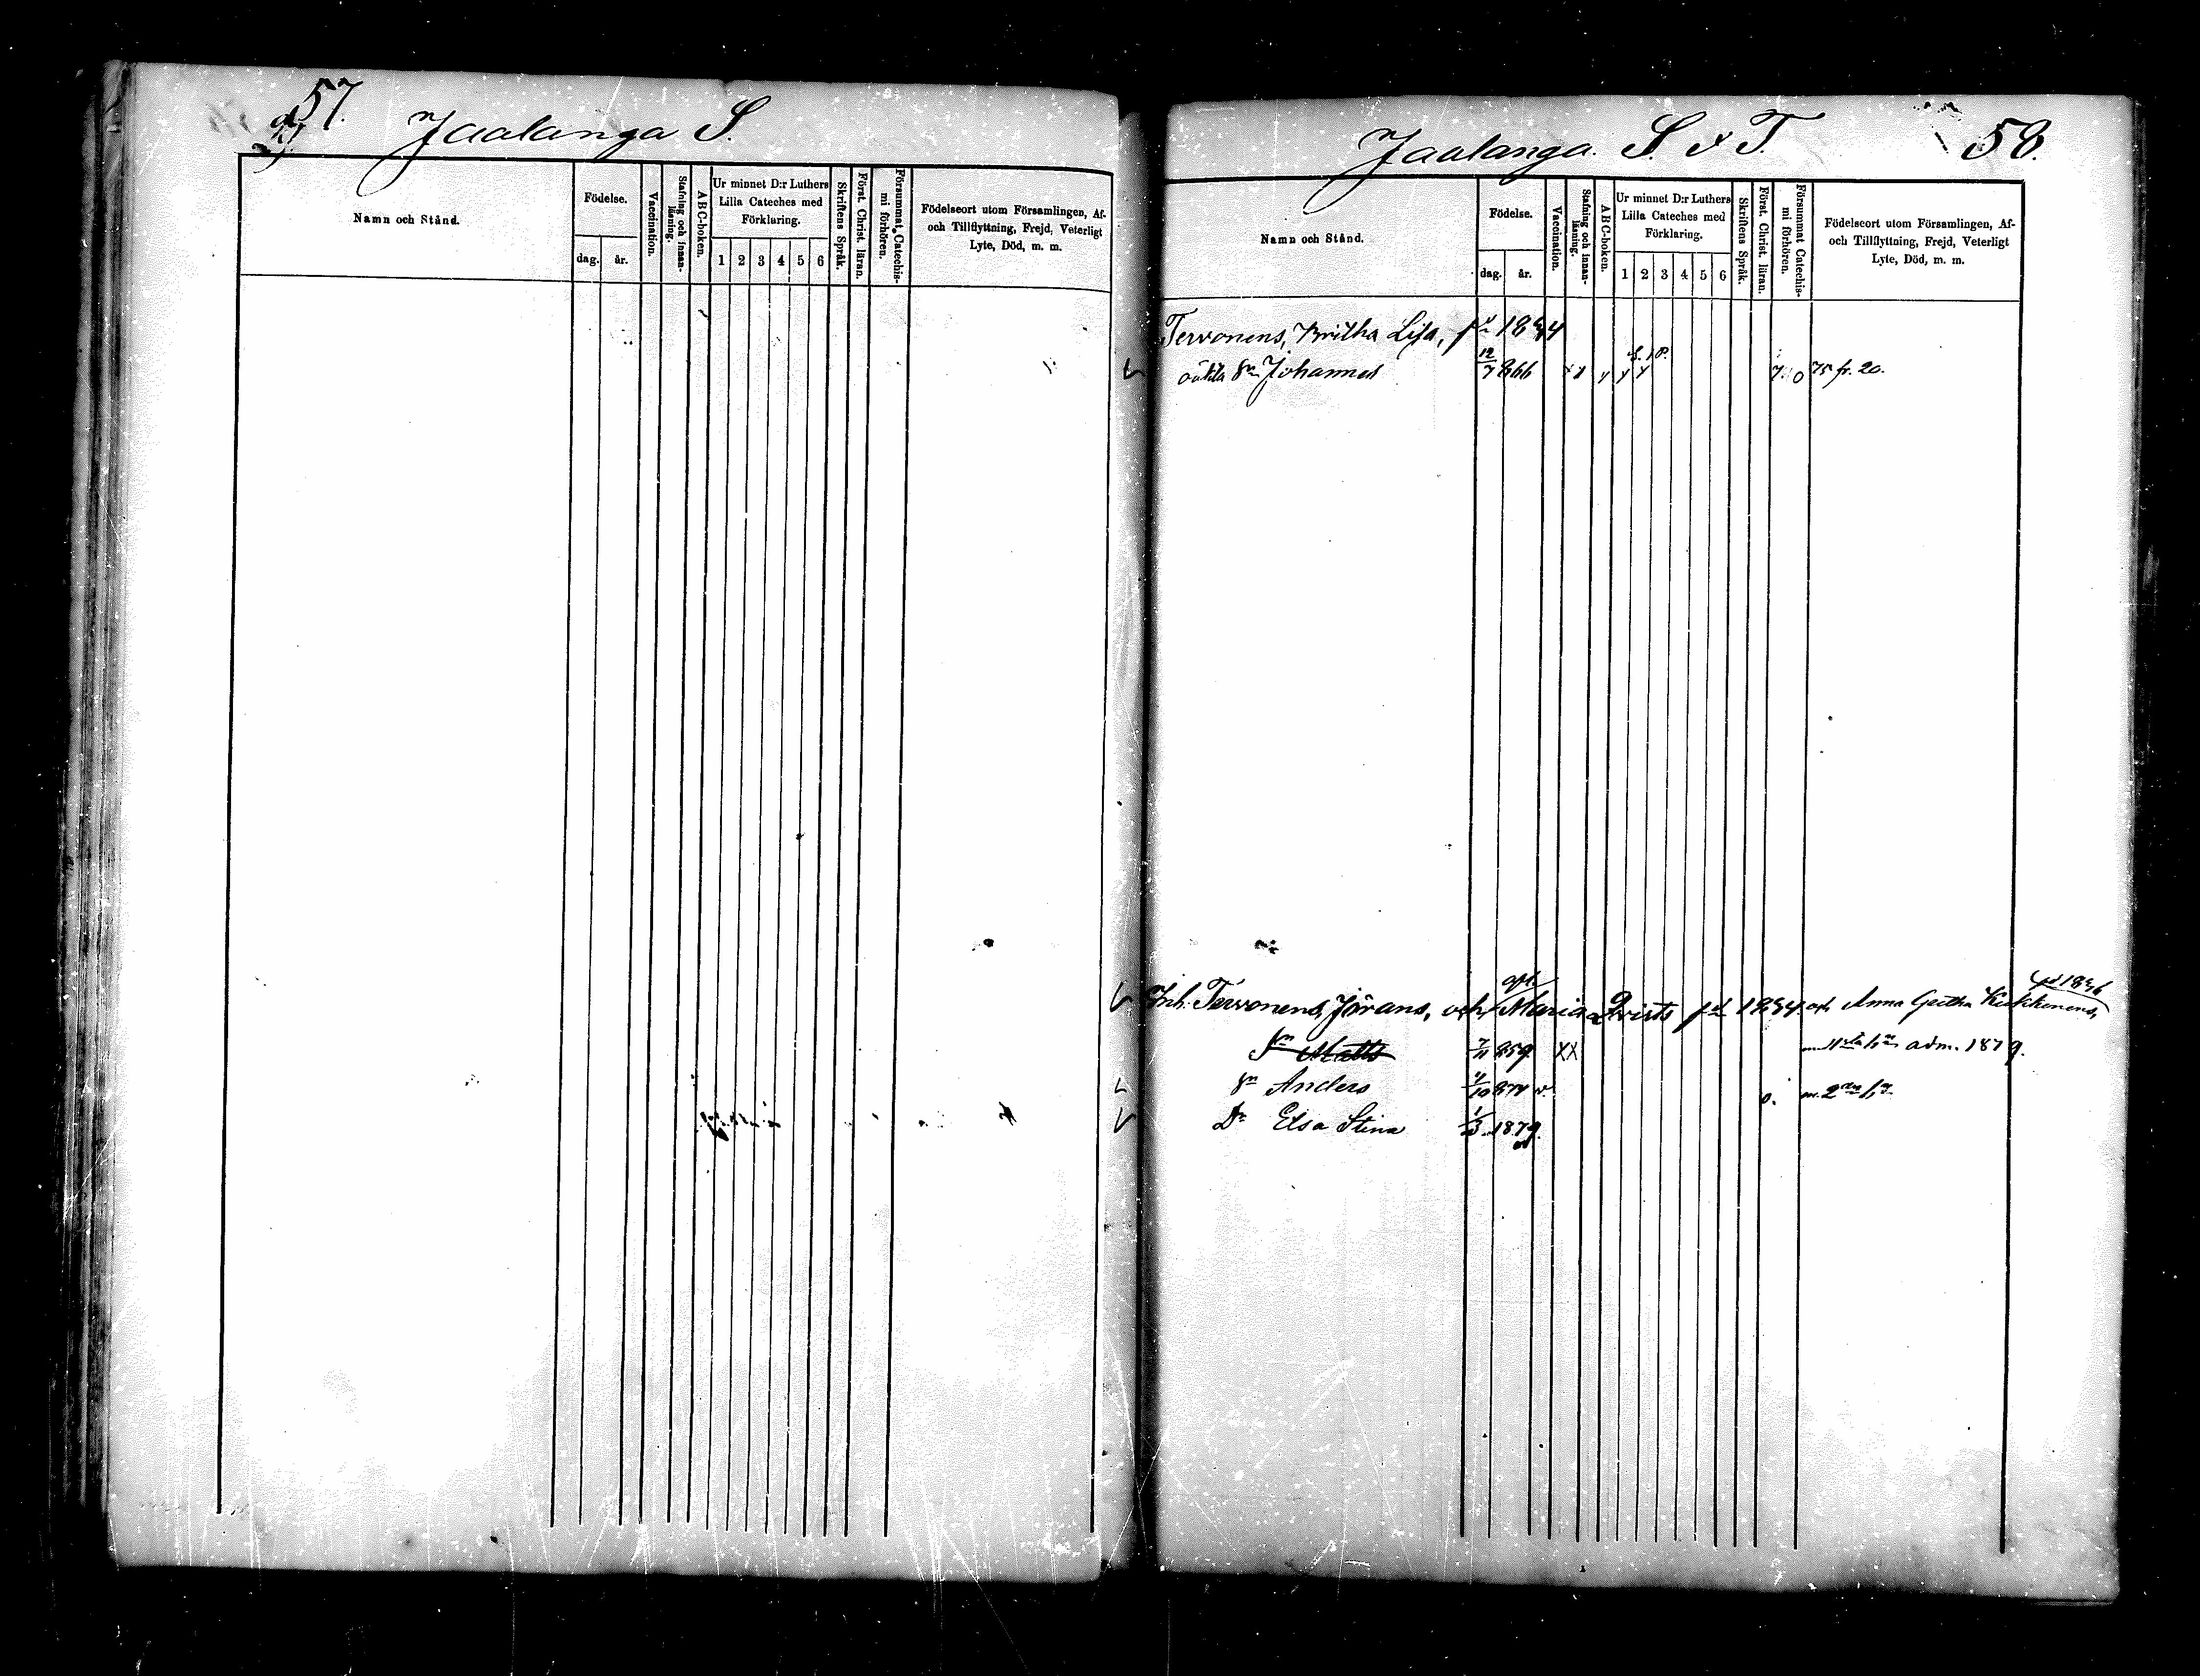 57.
Jaalanga S.
Namn och Stånd.
Födelse.
dag.
år.
Vaccination.
Stafning och innan-
läsning.
ABC-boken.
Ur minnet D:r Luthers
Lilla Cateches med
Förklaring.
1 2 3 4 5 6
Skriftens Språk.
Först. Christ. läran.
Försummat Catechis-
mi förhören.
Födelseort utom Församlingen, Af-
och Tillflyttning, Frejd, Veterligt
Lyte, Död, m. m.
Jaalanga. S. o T.
58.
Namn och Stånd.
Födelse.
dag.
år.
Vaccination.
Stafning och innan-
läsning.
ABC-boken.
Ur minnet D:r Luthers
Lilla Cateches med
Förklaring.
1 2 3 4 5 6
Skriftens Språk.
Först. Christ. läran.
Försummat Catechis-
mi förhören.
Födelseort utom Församlingen, Af-
och Tillflyttning, Frejd, Veterligt
Lyte, Död, m. m.
Tervonens, Britha Lisa, fd 1834
oäkta Sn Johannes 12/7 866 75 fr. 20.
fd 1836
Inh. Tervonens, Jörans, och Maria Qvists fd 1834 och Anna Greta Keikkonens,
Sn Matts 7/11 859 XX adm. 1879.
Sn Anders 4/10 874 v. 0. m. 2dra h.
Dr Elsa Stina 1/3 1879.